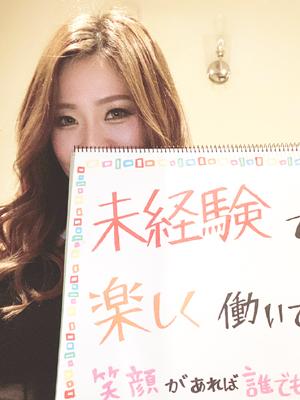 未経験で
楽しく働いて
笑顔があれば誰でも